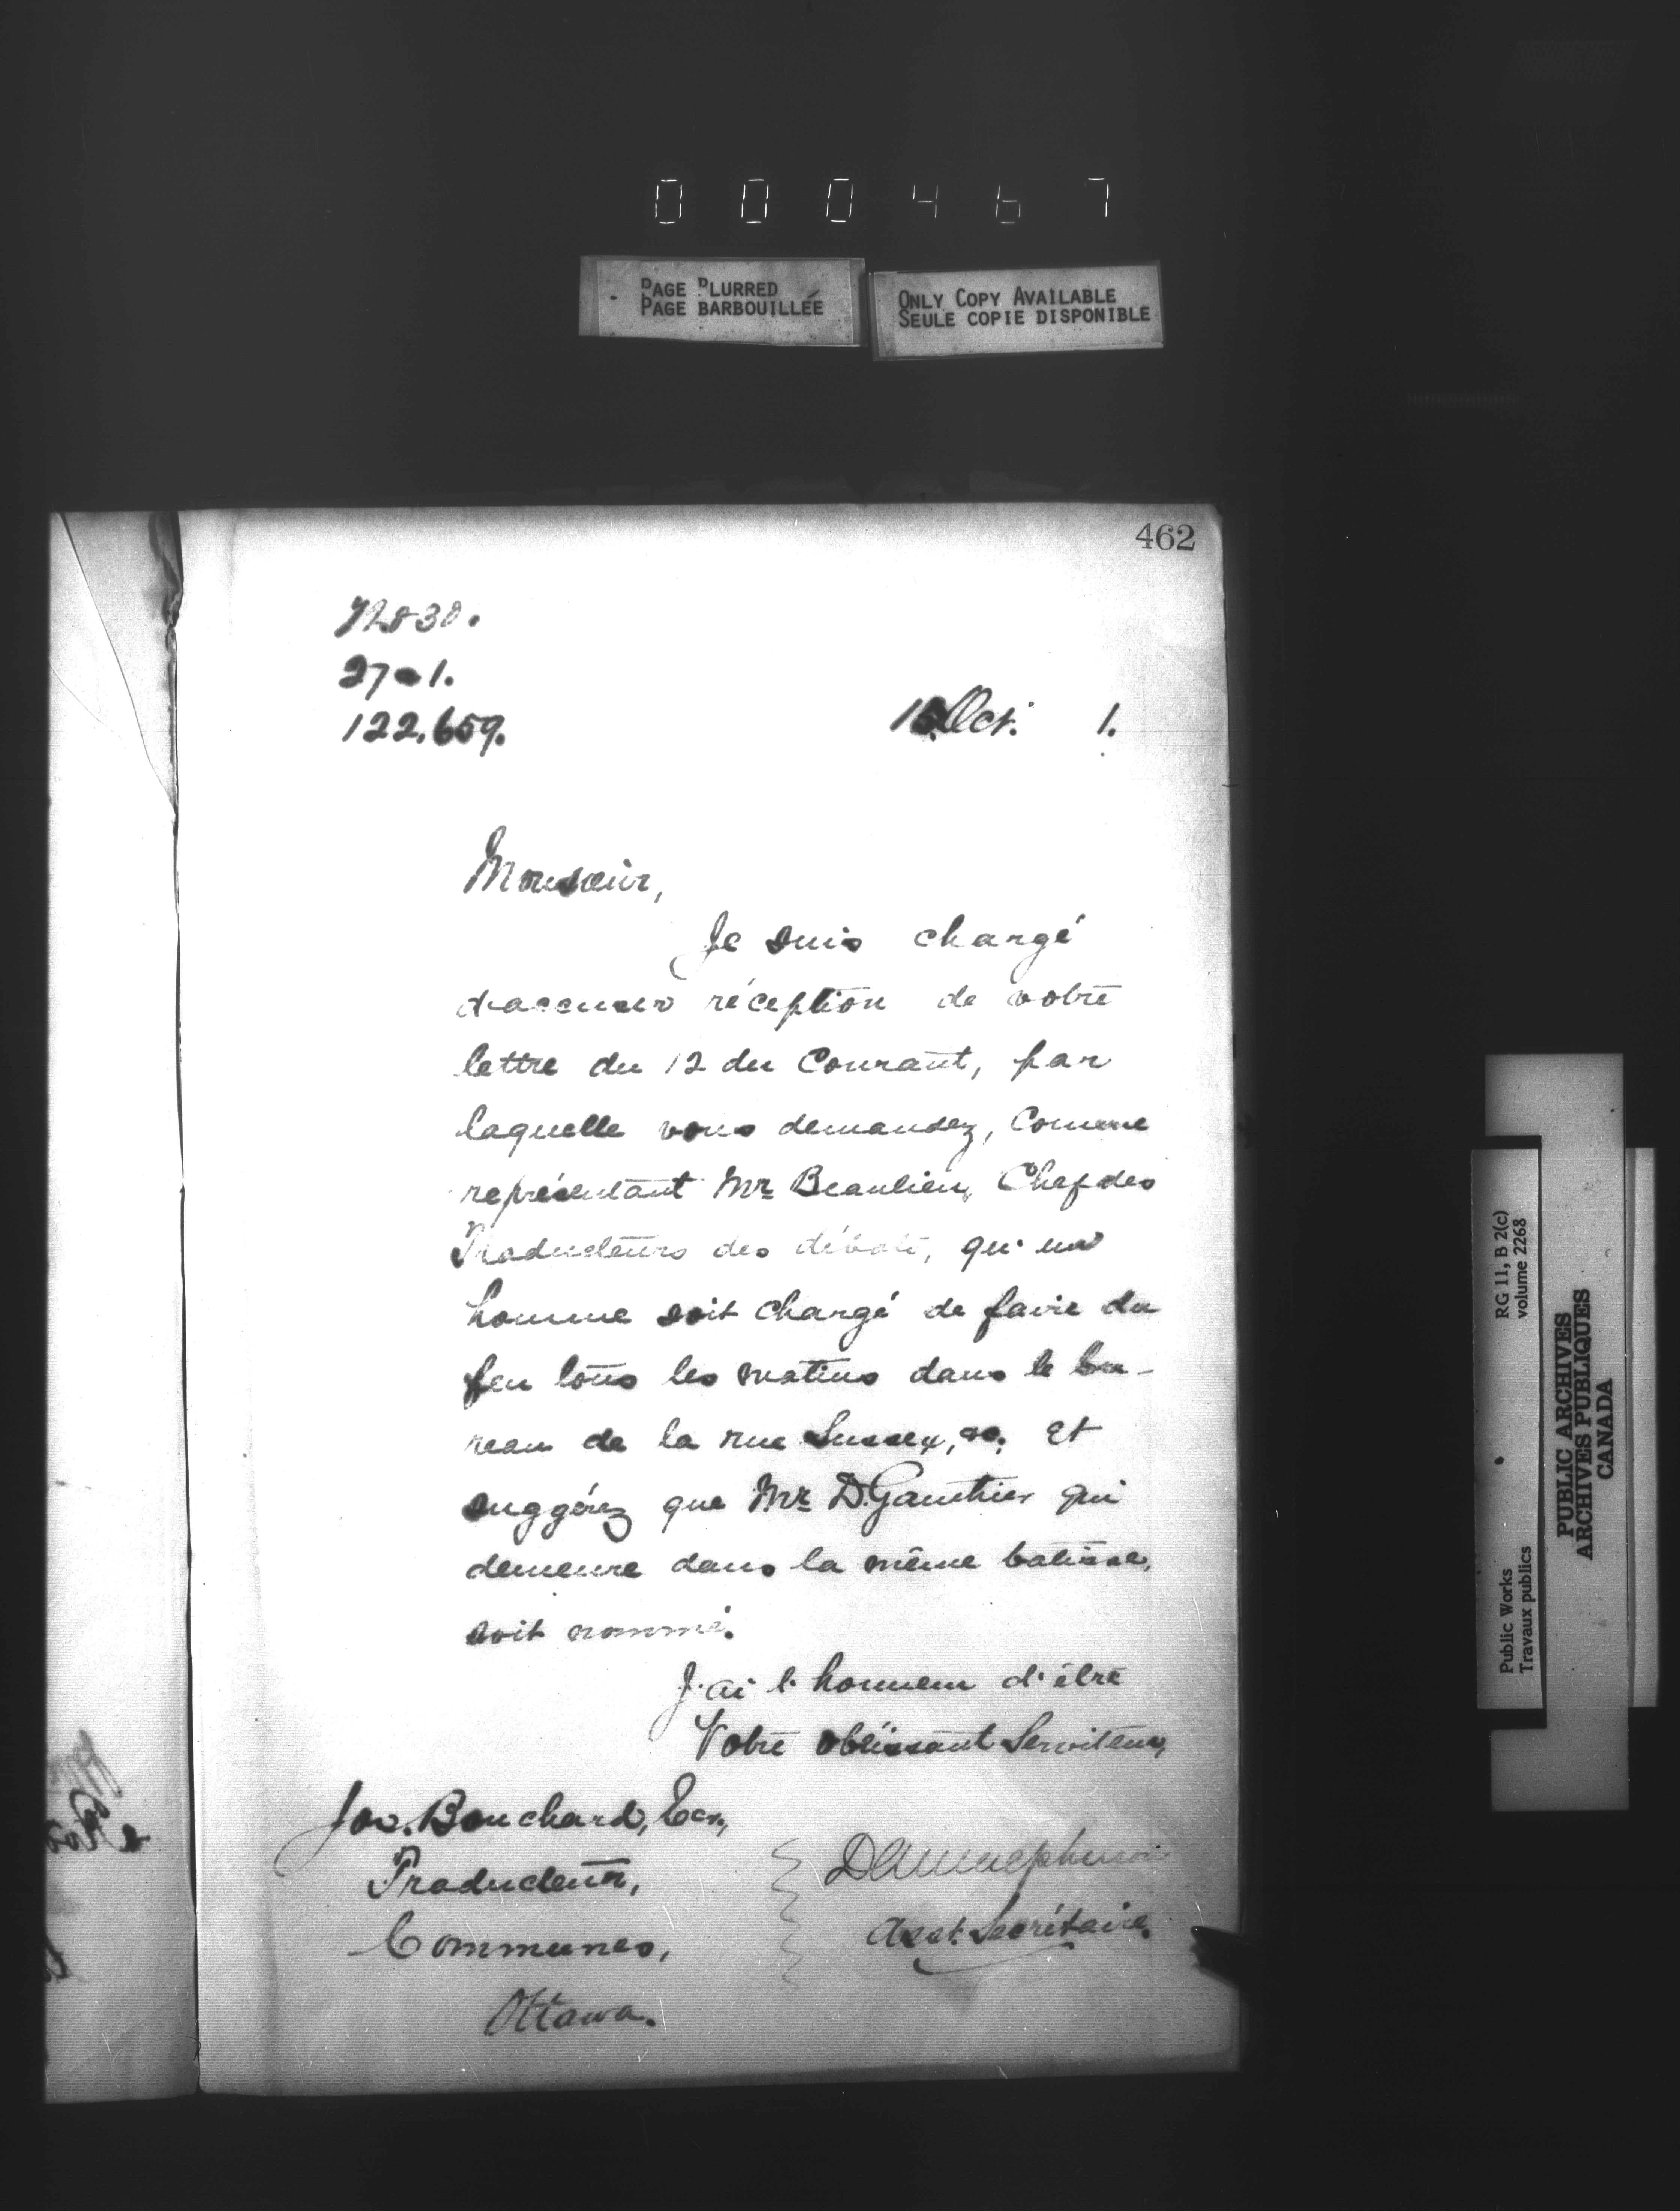 000467
PAGE BLURRED
PAGE BARBOUILLÉE
ONLY COPY AVAILABLE
SEULE COPIE DISPONIBLE
462
27-1.
122.659.
Oct. 1.
Monsieur,
Je suis chargé
d'accuser réception de votre
lettre du 12 du Courant, par
laquelle vous demandez, Comme
représentant Mr. Beaulieu, Chef des
Traducteurs des débats, qu'un
homme soit chargé de faire du
feu tous les matins dans le bu-
reau de la rue Sussex, &c. et
suggérez que Mr. D. Gauthier qui
demeure dans la même batisse,
soit nommé.
J'ai l'honneur d'être
Votre obéissant Serviteur,
Jos. Bouchard, Ecr.,
Traducteur,
Communes,
Ottawa.
Asst. Secrétaire.
RG 11, B 2(c)
volume 2268
Public Works
Travaux publics
PUBLIC ARCHIVES
ARCHIVES PUBLIQUES
CANADA